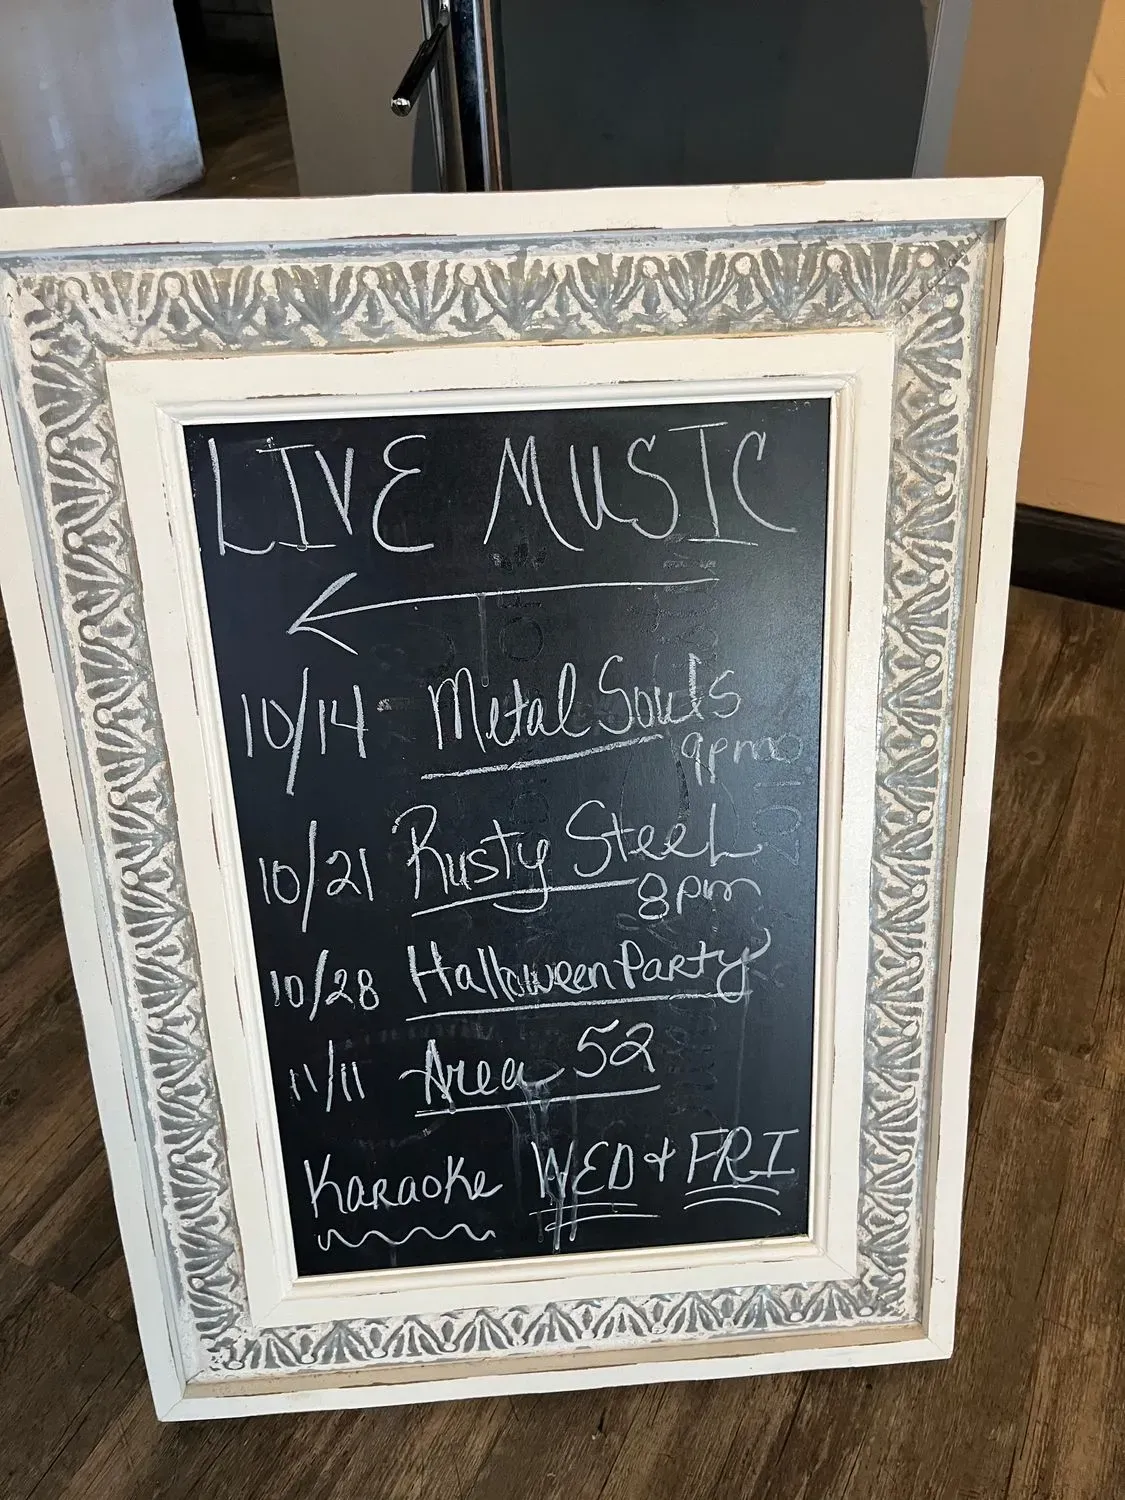 LIVE MUSIC
10/14 - Metal Souls
9pm
10/21 Rusty Steel
8pm
10/28 Halloween Party
11/11 Area 52
Karaoke WED + FRI